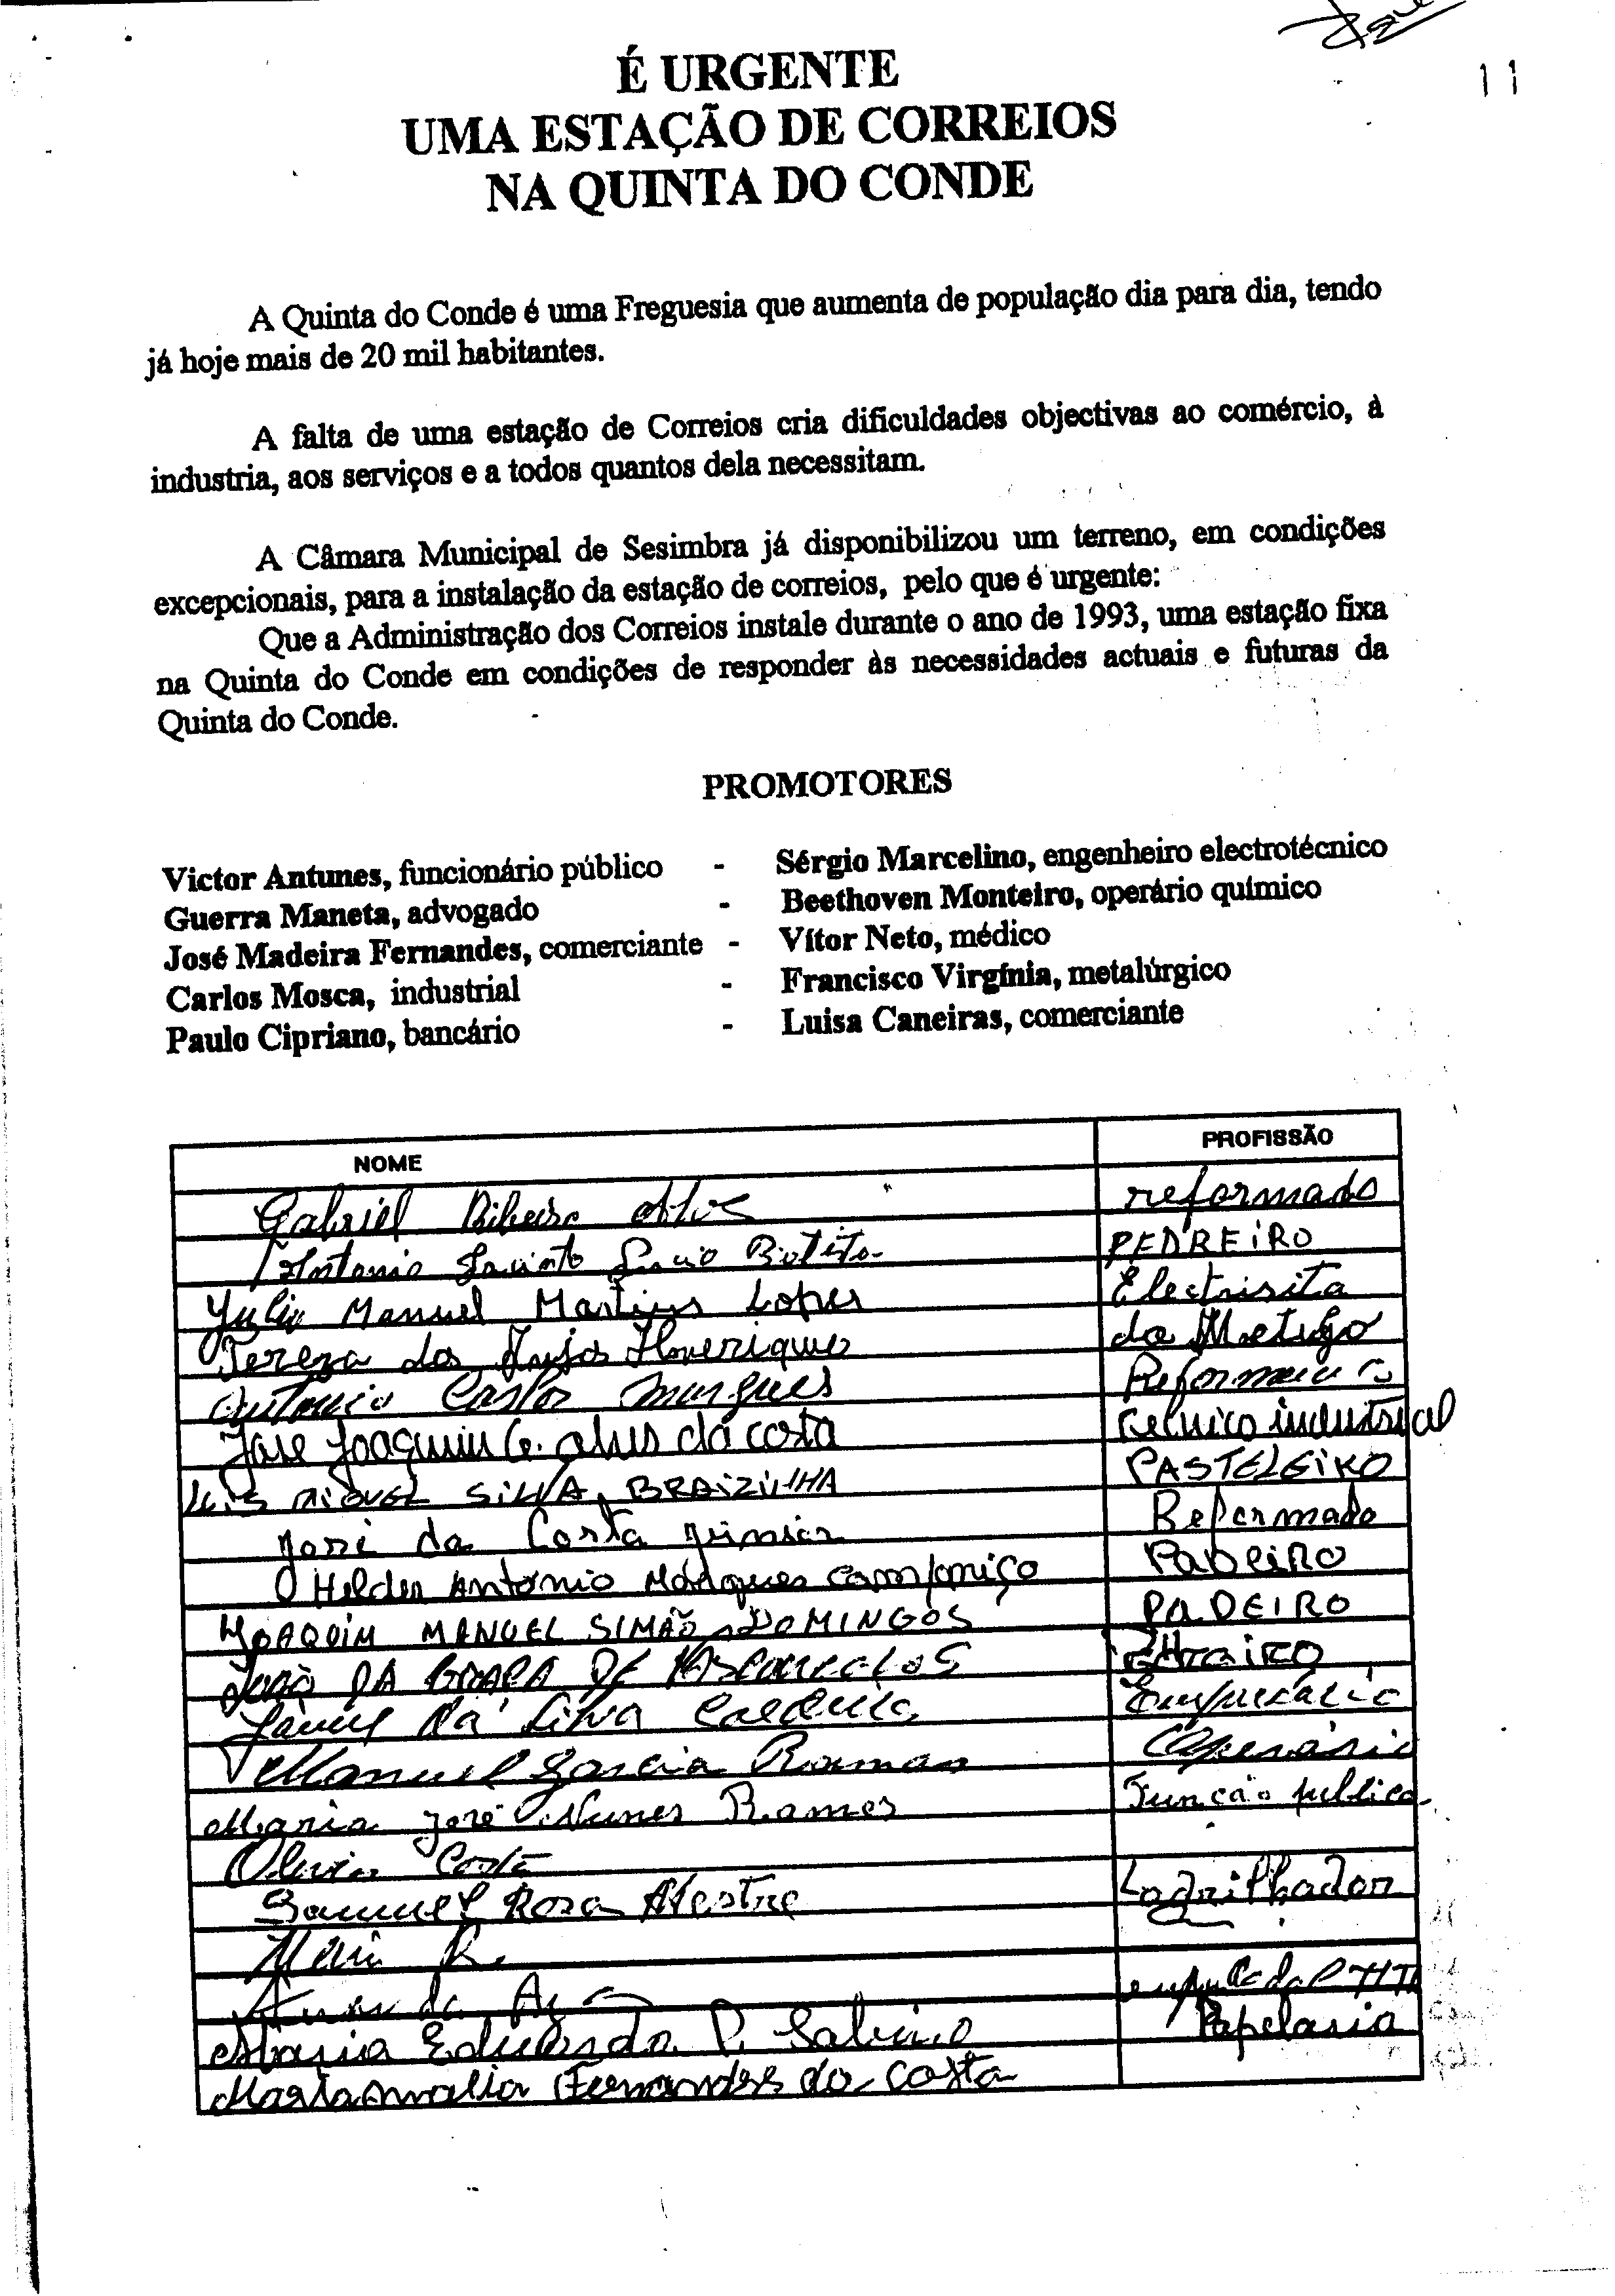 11
É URGENTE
UMA ESTAÇÃO DE CORREIOS
NA QUINTA DO CONDE
A Quinta do Conde é uma Freguesia que aumenta de população dia para dia, tendo
já hoje mais de 20 mil habitantes.
A falta de uma estação de Correios cria dificuldades objectivas ao comércio, à
industria, aos serviços e a todos quantos dela necessitam.
A Câmara Municipal de Sesimbra já disponibilizou um terreno, em condições
excepcionais, para a instalação da estação de correios, pelo que é urgente:
Que a Administração dos Correios instale durante o ano de 1993, uma estação fixa
na Quinta do Conde em condições de responder às necessidades actuais e futuras da
Quinta do Conde.
PROMOTORES
Victor Antunes, funcionário público - Sérgio Marcelino, engenheiro electrotécnico
Guerra Maneta, advogado - Beethoven Monteiro, operário químico
José Madeira Fernandes, comerciante - Vítor Neto, médico
Carlos Mosca, industrial - Francisco Virgínia, metalúrgico
Paulo Cipriano, bancário - Luisa Caneiras, comerciante
NOME PROFISSÃO
Gabriel Ribeiro Alves reformado
Antonio Jacinto Batista PEDREIRO
Julio Manuel Martins Lopes Electrisita
Tereza dos Anjos Henriques
Antonio Castor Marques
Jose Joaquim G. alves da costa tecnico industrial
Luis MIGUEL SILVA BRAIZINHA PASTELEIRO
José da Costa Junior Reformado
Helder António Marques Padeiro
JOAQUIM MANUEL SIMÃO DOMINGOS PADEIRO
João DA GRAÇA DE
da Silva Empresario
Manuel Garcia Ramos Operário
Maria José Nunes Ramos Função publica
Olivia Costa
Samuel Rosa Mestre Ladrilhador
Maria Eduarda P. Papelaria
Maria Amalia Fernandes da costa